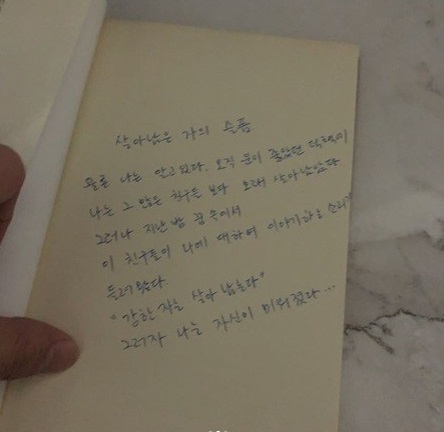 살아남은 자의 슬픔
물론 나는 알고 있다. 오직 운이 좋았던 덕택에
나는 그 많은 친구들 보다 오래 살아남았다
그러나 지난 밤 꿈 속에서
이 친구들이 나에 대하여 이야기하는 소리가
들려 왔다.
"강한 자는 살아 남는다"
그러자 나는 자신이 미워졌다...